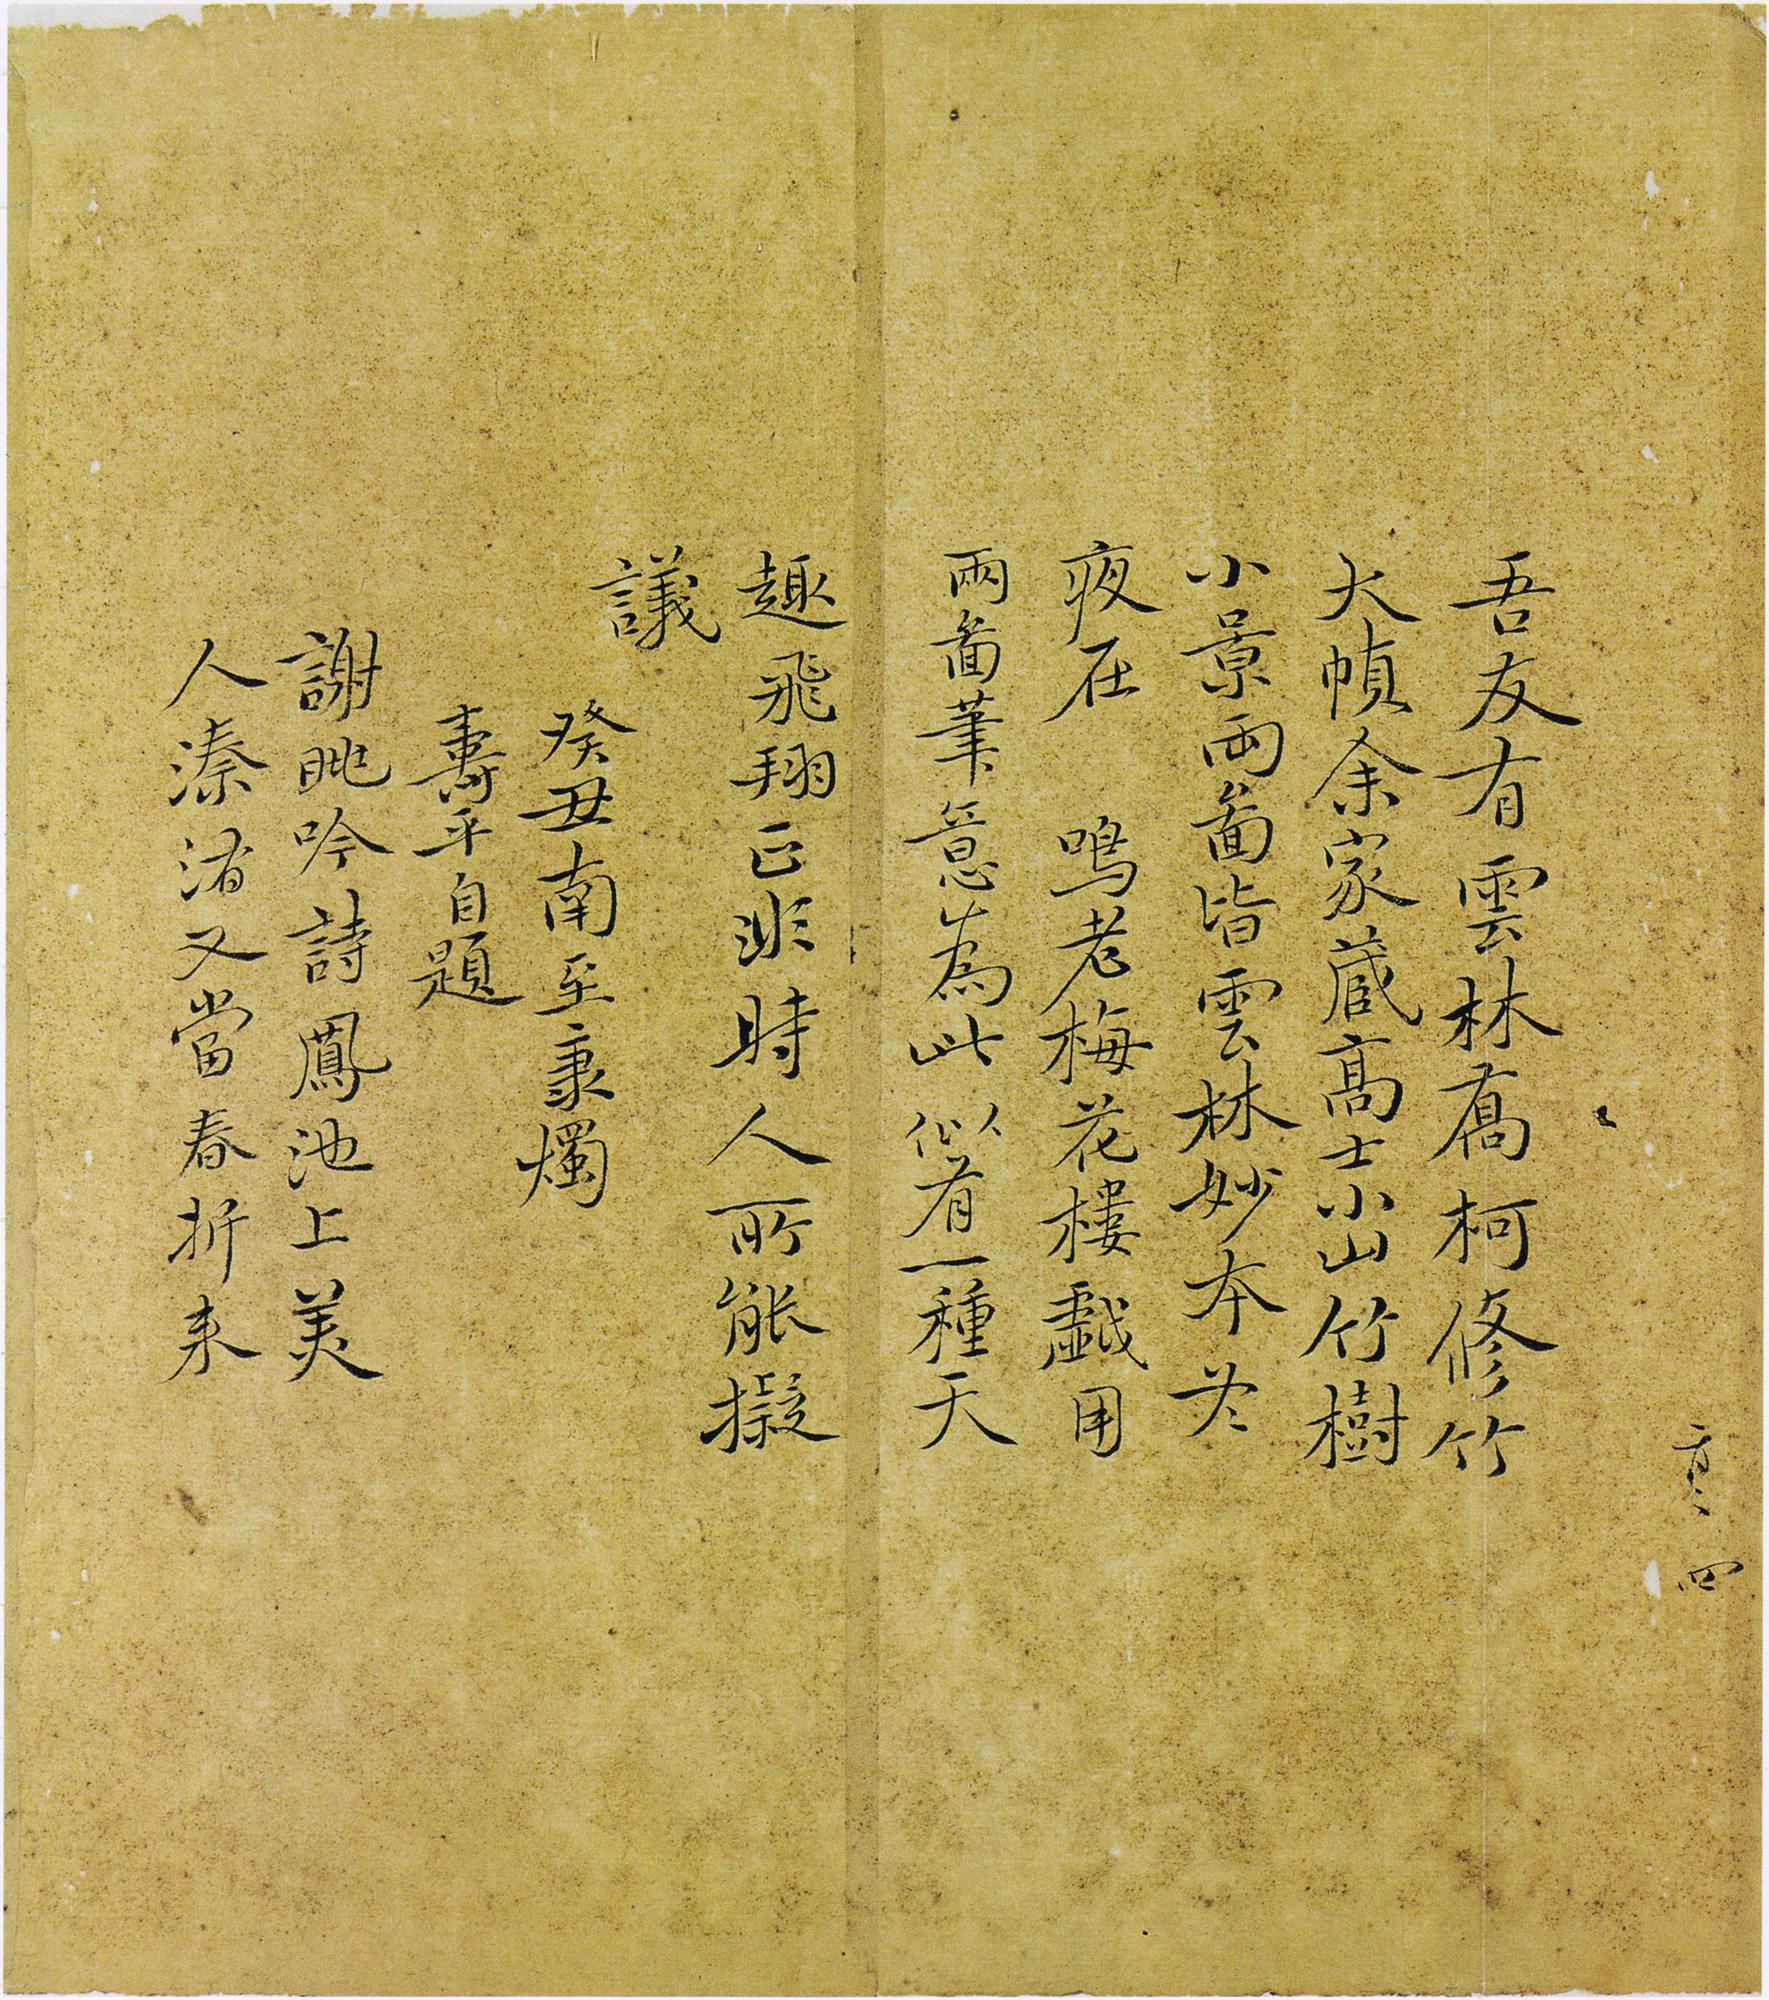 吾友有雲林喬柯修竹
大幀余家蔵高士小山竹樹
小景两啚皆雲林妙本冬
夜在 鳴老梅花樓戯用
兩啚筆意為此似有一種天
趣飛翔正非時人所能擬
議
癸丑南至秉燭
壽平自題
謝眺吟詩鳳池上美
人溱渚又當春折来
四